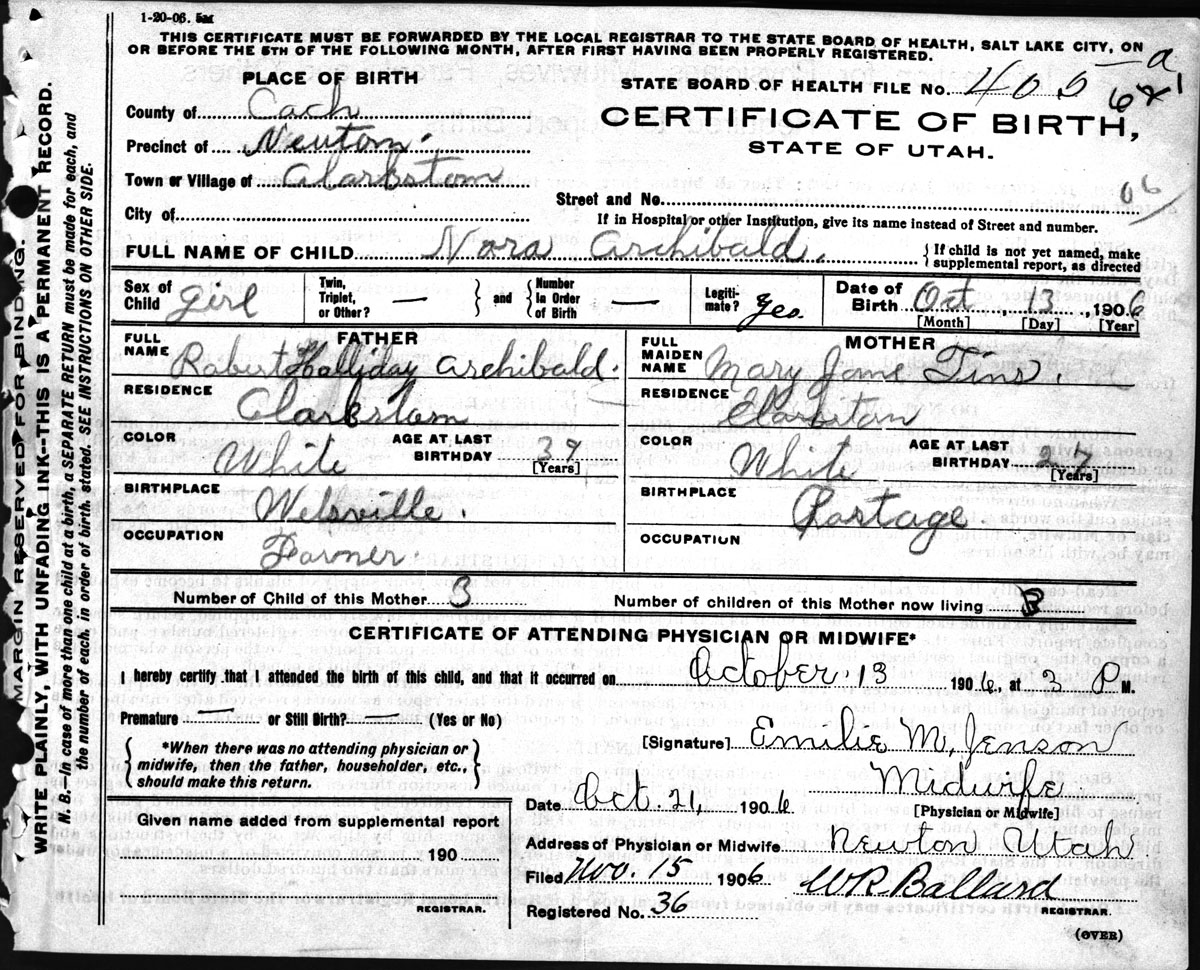 1-20-06. 5M
THIS CERTIFICATE MUST BE FORWARDED BY THE LOCAL REGISTRAR TO THE STATE BOARD OF HEALTH, SALT LAKE CITY, ON
OR BEFORE THE 5TH OF THE FOLLOWING MONTH, AFTER FIRST HAVING BEEN PROPERLY REGISTERED.
PLACE OF BIRTH
County of Cach
Precinct of Newton.
Town or Village of Clarkston
City of
STATE BOARD OF HEALTH FILE NO. 405 — a
CERTIFICATE OF BIRTH,
STATE OF UTAH.
Street and No. 06
If in Hospital or other Institution, give its name instead of Street and number.
FULL NAME OF CHILD Nora Archibald. { If child is not yet named, make
supplemental report, as directed
Sex of Child girl
Twin, Triplet, or Other? — } and { Number In Order of Birth —
Legiti-mate? Yes
Date of Birth Oct, 13, 1906
[Month] [Day] [Year]
FATHER
FULL NAME Robert Halliday Archibald.
RESIDENCE Clarkston
COLOR White AGE AT LAST BIRTHDAY 37
[Years]
BIRTHPLACE Welsville.
OCCUPATION Farmer.
MOTHER
FULL MAIDEN NAME Mary Jane Tins.
RESIDENCE Clarkston
COLOR White AGE AT LAST BIRTHDAY 27
[Years]
BIRTHPLACE Portage
OCCUPATION
Number of Child of this Mother 3 Number of children of this Mother now living 3
CERTIFICATE OF ATTENDING PHYSICIAN OR MIDWIFE*
I hereby certify that I attended the birth of this child, and that it occurred on October 13 1906, at 3 P M.
Premature — or Still Birth? — (Yes or No)
{ *When there was no attending physician or
midwife, then the father, householder, etc.,
should make this return. }
Given name added from supplemental report
190
REGISTRAR.
[Signature] Emilie M. Jenson
Midwife
[Physician or Midwife]
Date Oct. 21, 1906
Address of Physician or Midwife Newton Utah
Filed Nov. 15 1906 W R Ballard
REGISTRAR.
Registered No. 36
(OVER)
MARGIN RESERVED FOR BINDING.
WRITE PLAINLY, WITH UNFADING INK--THIS IS A PERMANENT RECORD.
N. B.--In case of more than one child at a birth, a SEPARATE RETURN must be made for each, and
the number of each, in order of birth, stated. SEE INSTRUCTIONS ON OTHER SIDE.